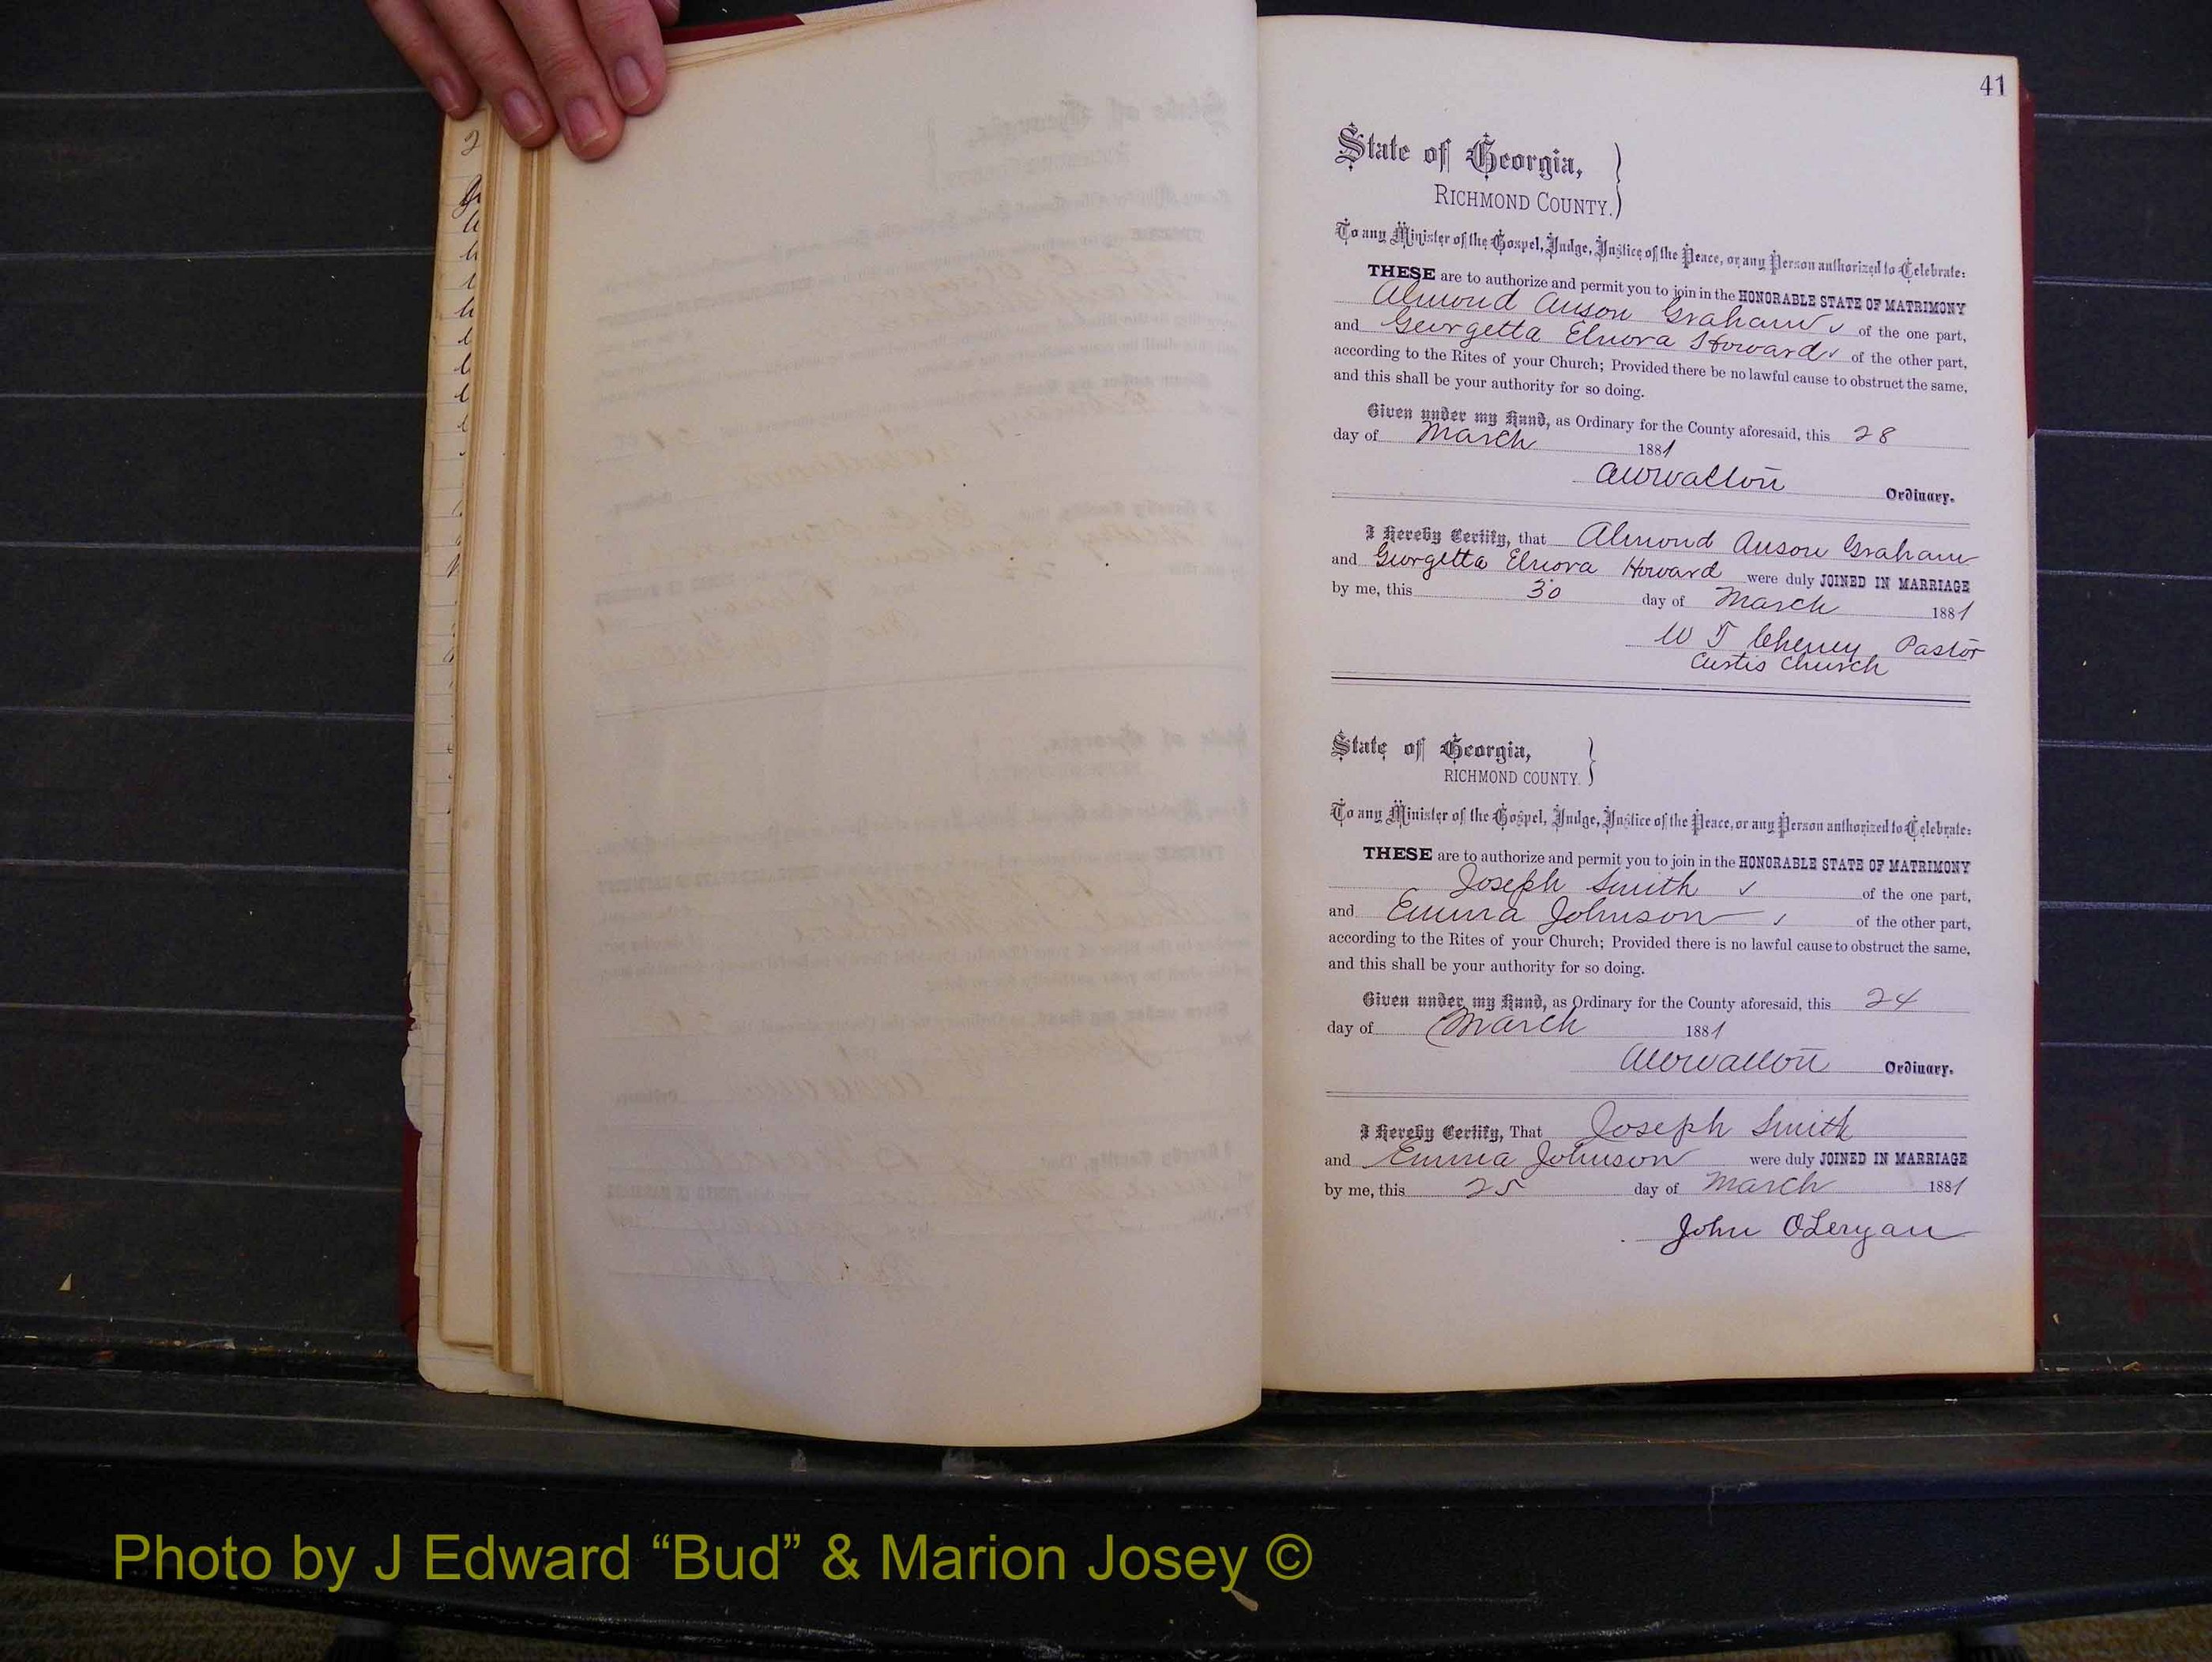 41
State of Georgia,
RICHMOND COUNTY.
To any Minister of the Gospel, Judge, Justice of the Peace, or any Person authorized to Celebrate:
THESE are to authorize and permit you to join in the HONORABLE STATE OF MATRIMONY
Almond Anson Graham of the one part,
and Georgetta Elnora Howard of the other part,
according to the Rites of your Church; Provided there be no lawful cause to obstruct the same,
and this shall be your authority for so doing.
Given under my Hand, as Ordinary for the County aforesaid, this 28
day of March 1881
Ordinary.
I Hereby Certify, that Almond Anson Graham
and Georgetta Elnora Howard were duly JOINED IN MARRIAGE
by me, this 30 day of March 1881
W T Cheney Pastor
Curtis Church
State of Georgia,
RICHMOND COUNTY.
To any Minister of the Gospel, Judge, Justice of the Peace, or any Person authorized to Celebrate:
THESE are to authorize and permit you to join in the HONORABLE STATE OF MATRIMONY
Joseph Smith of the one part,
and Emma Johnson of the other part,
according to the Rites of your Church; Provided there is no lawful cause to obstruct the same,
and this shall be your authority for so doing.
Given under my Hand, as Ordinary for the County aforesaid, this 24
day of March 1881
Ordinary.
I Hereby Certify, That Joseph Smith
and Emma Johnson were duly JOINED IN MARRIAGE
by me, this 25 day of March 1881
John
Photo by J Edward “Bud” & Marion Josey ©